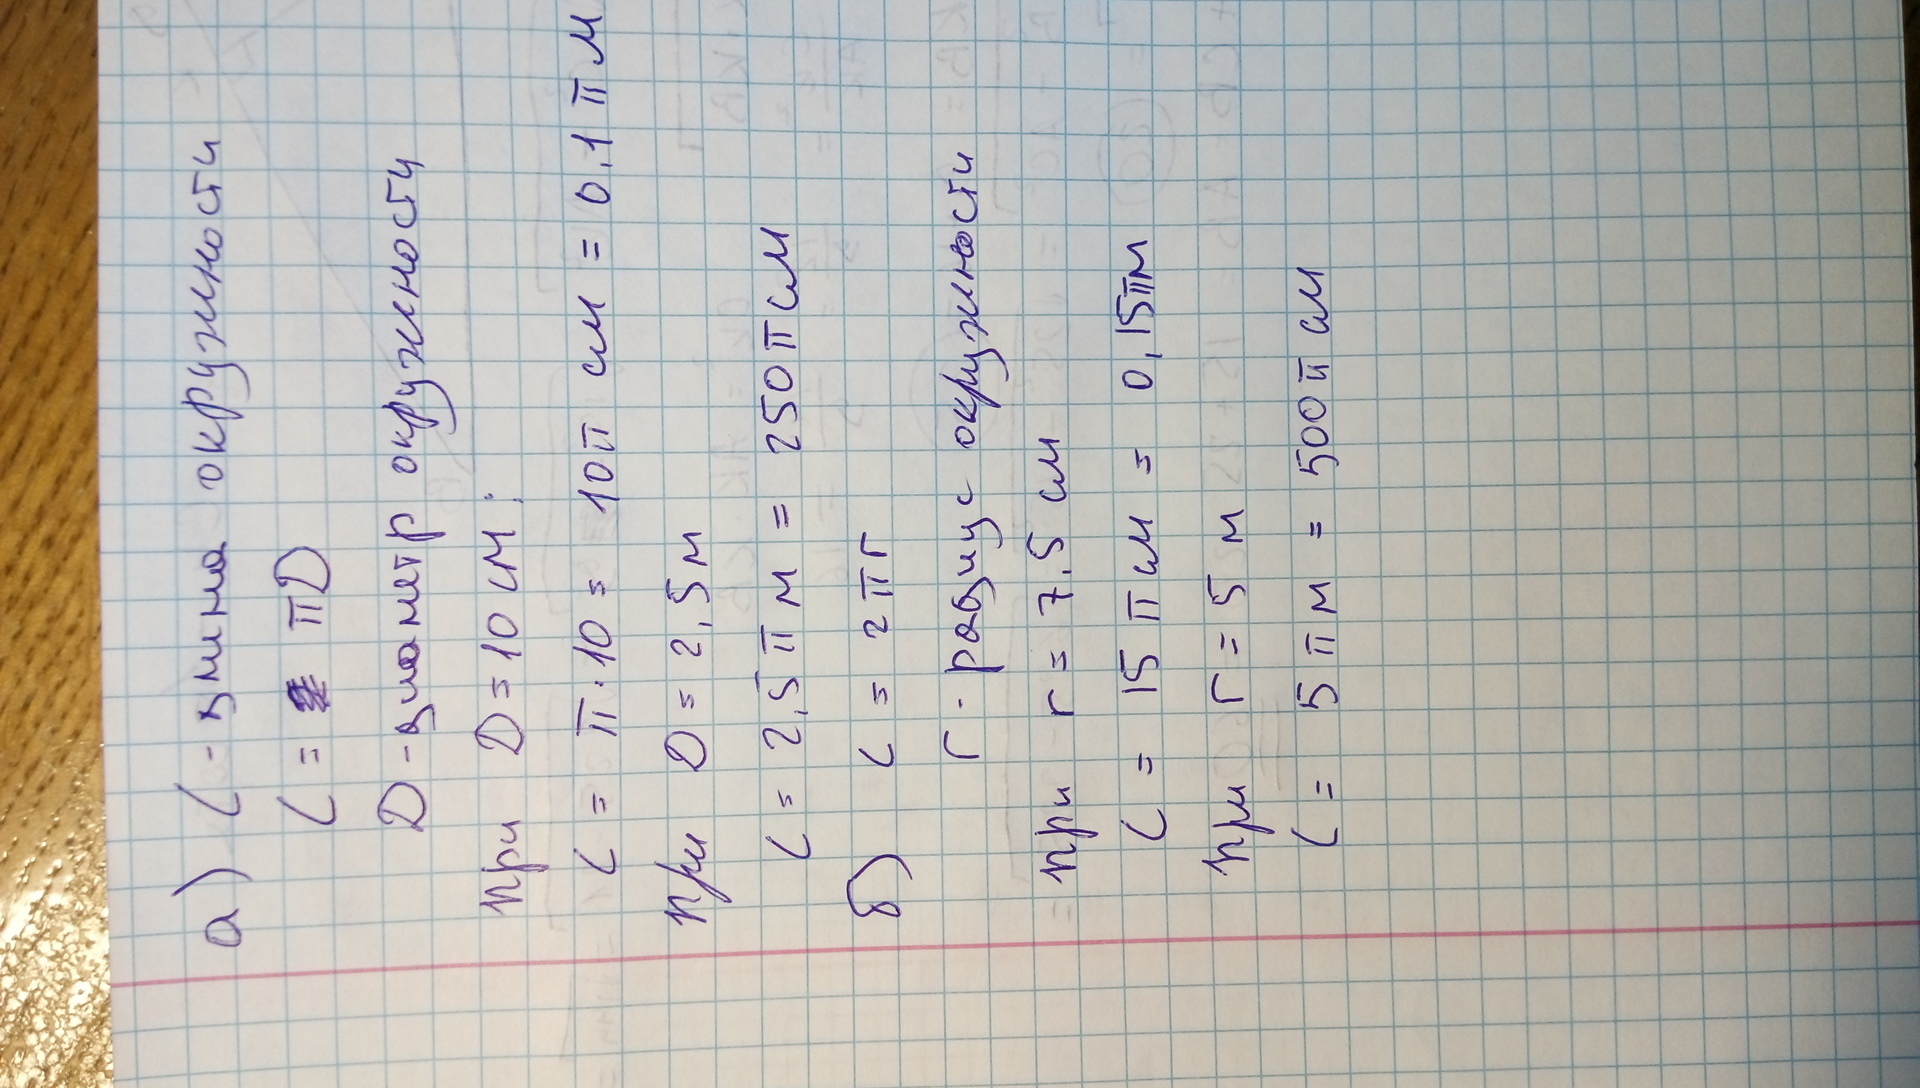 а) C - длина окружности
C = πD
D - диаметр окружности
при D = 10 см:
C = π · 10 = 10π см = 0,1 π м
при D = 2,5 м
C = 2,5 π м = 250 π см
б) C = 2 π r
r - радиус окружности
при r = 7,5 см
C = 15 π см = 0,15π м
при r = 5 м
C = 5 π м = 500 π см